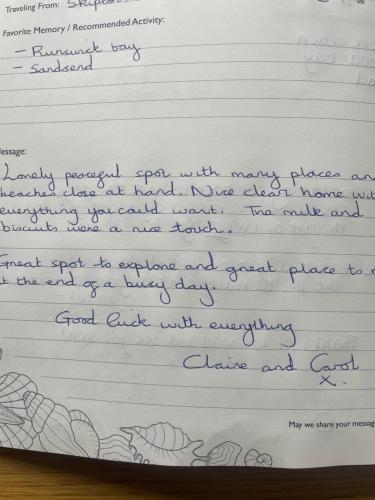 Traveling From: Skipton
Favorite Memory / Recommended Activity:
- Runswick bay
- Sandsend
Message:
Lovely peaceful spot with many places and
beaches close at hand. Nice clean home with
everything you could want. The milk and
biscuits were a nice touch.
Great spot to explore and great place to
at the end of a busy day.
Good luck with everything
Claire and Carol
x.
May we share your message